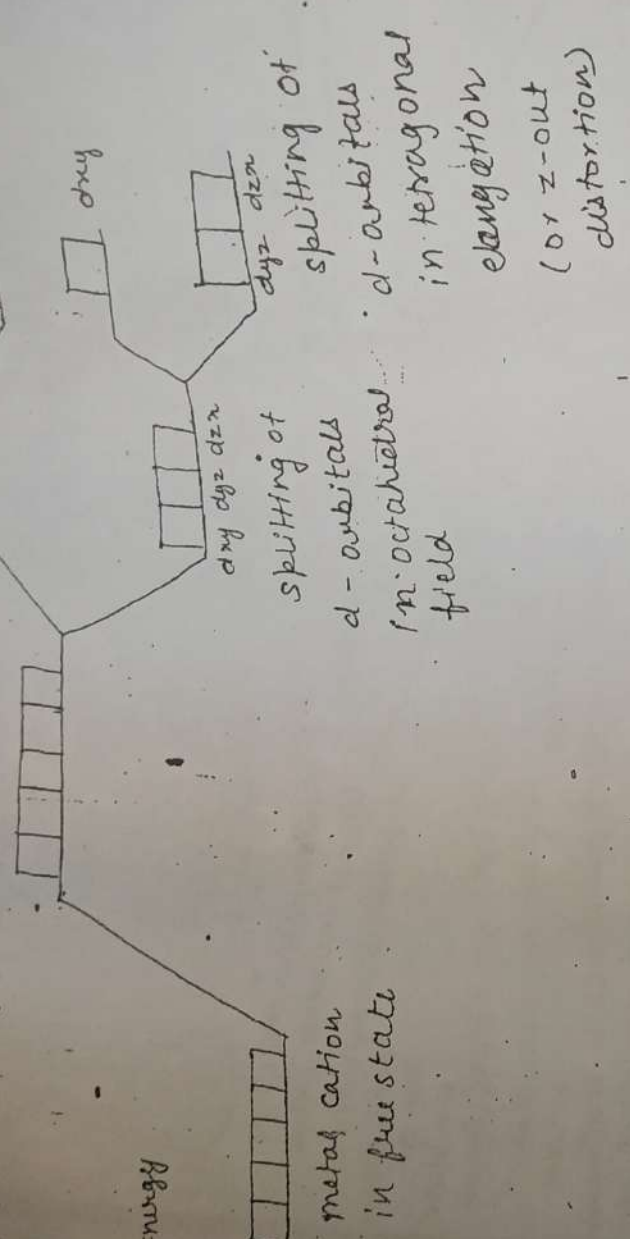 nergy
metal cation
in free state
dxy dyz dzx
splitting of
d-orbitals
in octahedral
field
dxy
dyz dzx
splitting of
d-orbitals
in tetragonal
elangation
(or z-out
distortion)